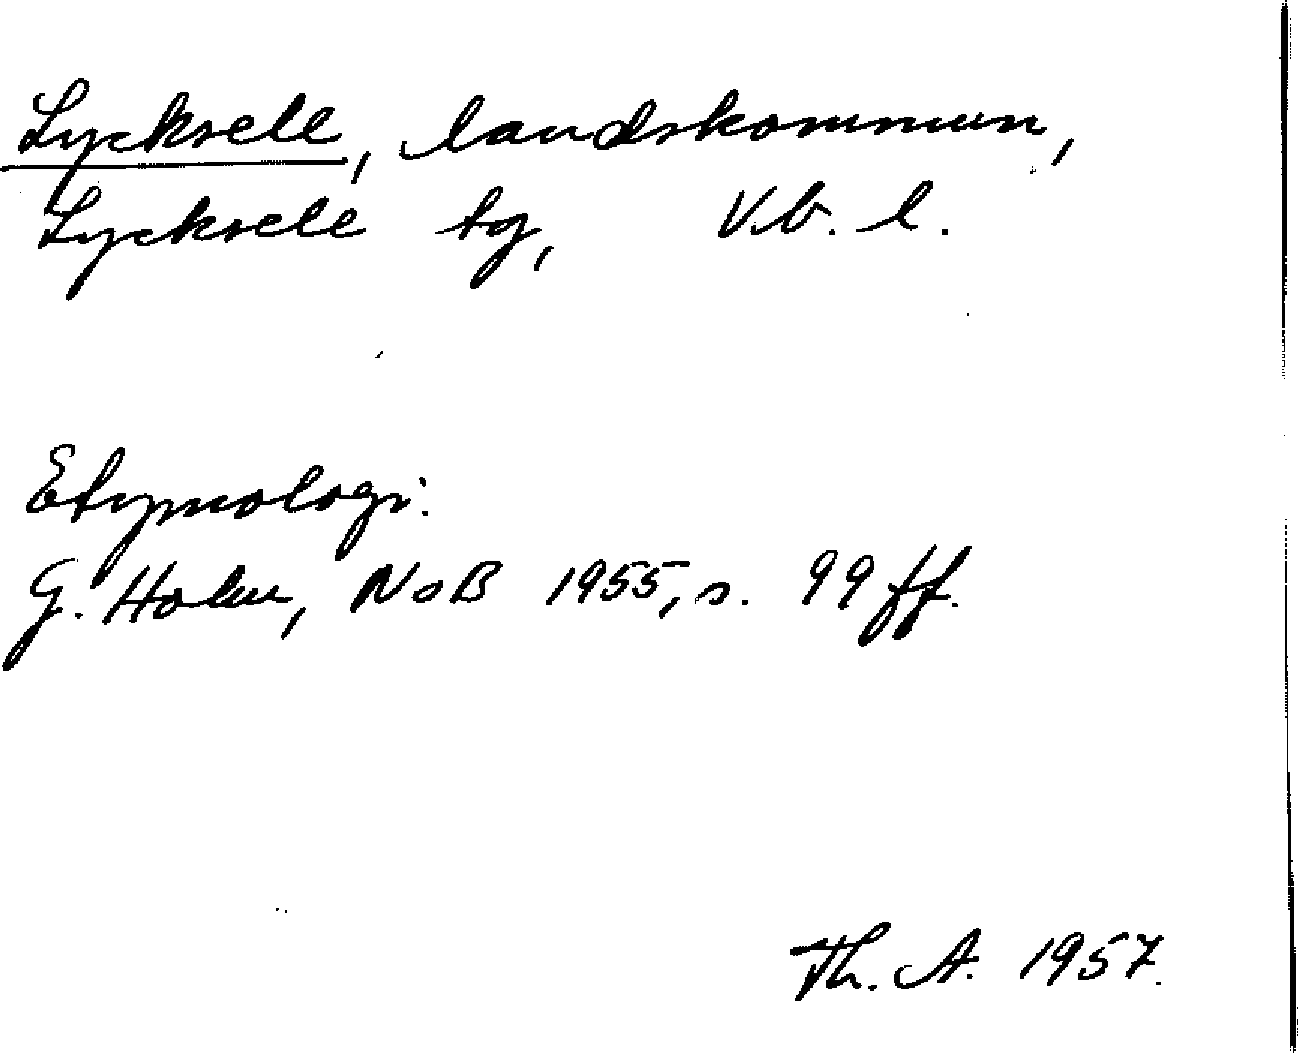 Lycksele, landskommun,
Lycksele tg, V.b. l.
Etymologi:
G. Holm, NoB 1955, s. 99 ff.
Th. A. 1957.